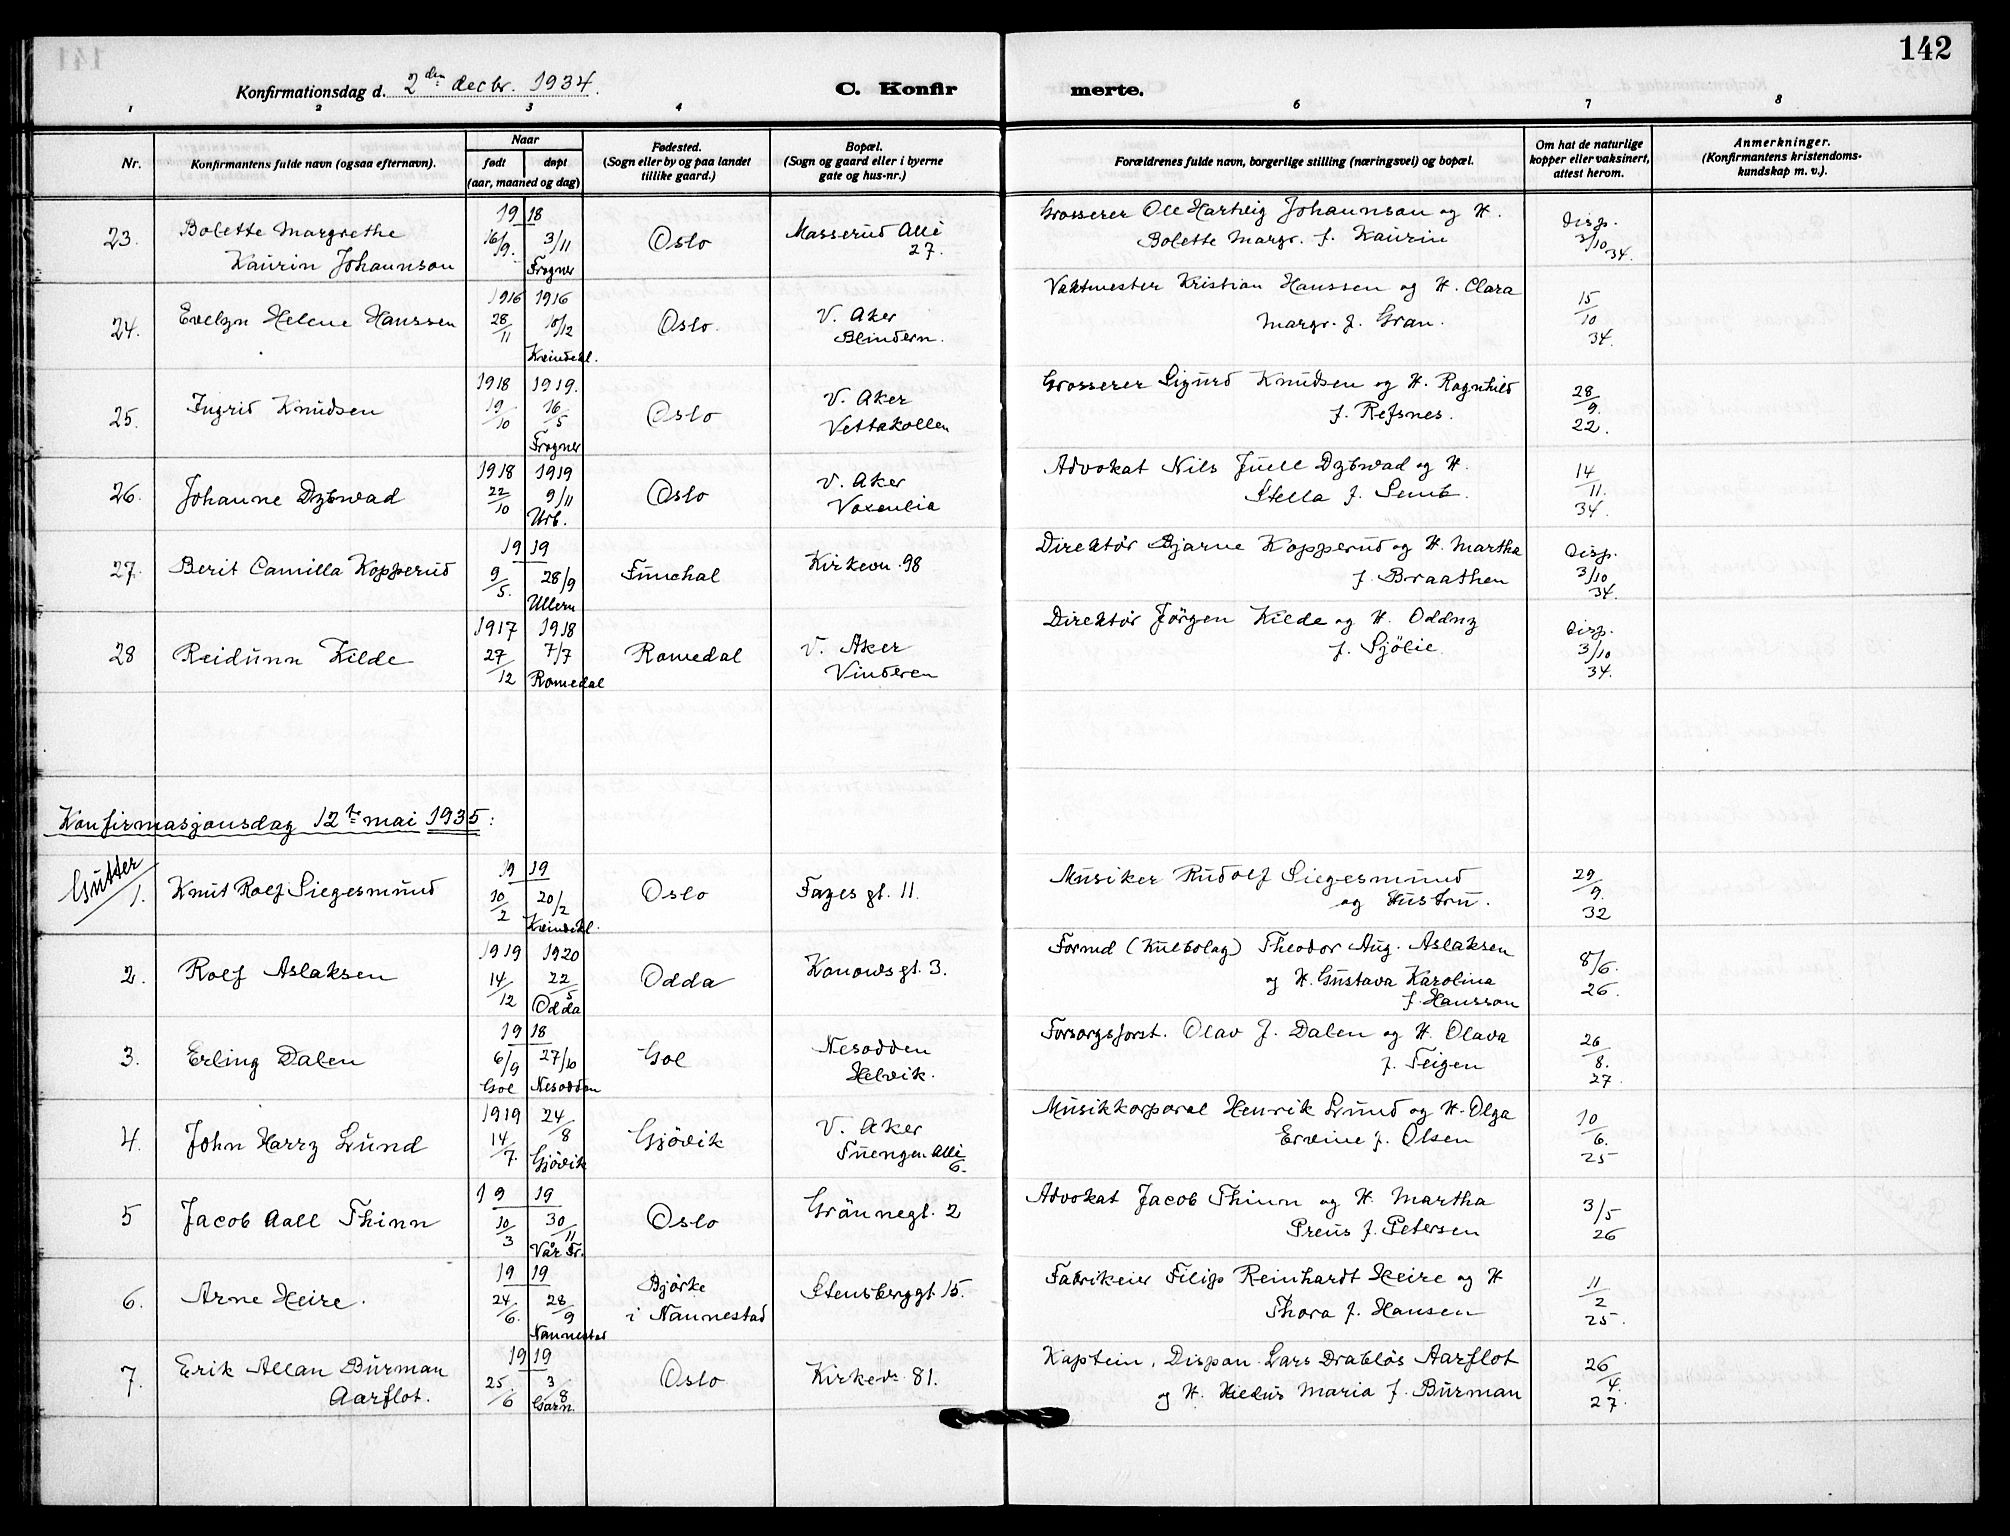 142
Konfirmationsdag d. 2den decbr. 1934.
C. Konfir merte.
1 2 3 4 6 7 8
Nr.
Konfirmantens fulde navn (ogsaa efternavn).
Naar
født døpt
(aar, maaned og dag)
Fødested.
(Sogn eller by og paa landet
tillike gaard.)
Bopæl.
(Sogn og gaard eller i byerne
gate og hus-nr.)
Forældrenes fulde navn, borgerlige stilling (næringsvei) og bopæl.
Om hat de naturlige
kopper eller vaksinert,
attest herom.
Anmerkninger.
(Konfirmantens kristendoms-
kundskap m. v.).
23. Bolette Margrethe
Kaurin Johannson
19 18
16/9. 3/11
Frogner
Oslo
Masserud Allé
27.
Grosserer Ole Hartvig Johannson og H.
Bolette Margr. f. Kaurin
Disp.
3/10 34.
24. Evelyn Helene Hanssen
1916 1916
28/11 10/12
Kvindekl.
Oslo.
V. Aker
Blindern.
Vaktmester Kristian Hanssen og H. Clara
Margr. f. Gran.
15/10
34.
25. Ingrid Knudsen
1918 1919.
19/10 16/5
Frogner
Oslo
V. Aker
Vettakollen
Grosserer Sigurd Knudsen og H. Ragnhild
f. Refsnes.
28/9.
22.
26. Johanne Dybwad
1918 1919
22/10 9/11
Urb.
Oslo
V. Aker
Voxenlia
Advokat Nils Juell Dybwad og H.
Stella f. Semb.
14/11.
34.
27. Berit Camilla Kopperud
19 19
9/5. 28/9
Ullern
Funchal
Kirkevn. 98
Direktør Bjarne Kopperud og H. Martha
f. Braathen
Disp.
3/10
34.
28 Reidunn Kilde
1917 1918
27/12 7/7
Romedal
Romedal
V. Aker
Vinderen
Direktør Jörgen Kilde og H. Oddny
f. Sjölie
Disp.
3/10
34.
Konfirmasjonsdag 12te mai 1935:
Gutter
1. Knut Rolf Siegesmund
19 19
10/2 20/2
Kvindekl.
Oslo
Fayes gt. 11.
Musiker Rudolf Siegesmund
og Hustru.
29/9.
32
2. Rolf Aslaksen
1919 1920
14/12 22/5
Odda
Odda
Konowsgt. 3.
Formd (Kulbolag) Theodor Aug. Aslaksen
og H. Gustava Karolina
f. Hansson
8/6.
26.
3. Erling Dalen
19 18
6/9 27/10
Gol Nesodden
Gol
Nesodden
Helvik.
Forsorgsforst. Olav J. Dalen og H. Olava
f. Teigen
26/8.
27.
4. John Harry Lund
1919 24/8
14/7. Gjövik
Gjövik
V. Aker
Tuengen Allé
6.
Musikkorporal Henrik Lund og H. Olga
Ervine f. Olsen
10/6.
25
5 Jacob Aall Thinn
19 19
10/3 30/11
Vår Fr.
Oslo
Grönnegt. 2
Advokat Jacob Thinn og H. Martha
Preus f. Petersen
3/5
26
6. Arne Heire.
19 19
24/6. 28/9
Nannestad
Bjørke
i Nannestad
Stensberggt. 15.
Fabrikeier Filip Reinhardt Heire og H
Thora f. Hansen
11/2
25.
7. Erik Allan Burman
Aarflot.
19 19
25/6 3/8
Garn.
Oslo
Kirkev. 81.
Kaptein, Dispon. Lars Drabløs Aarflot
og H. Hildur Maria f. Burman
26/4.
27.